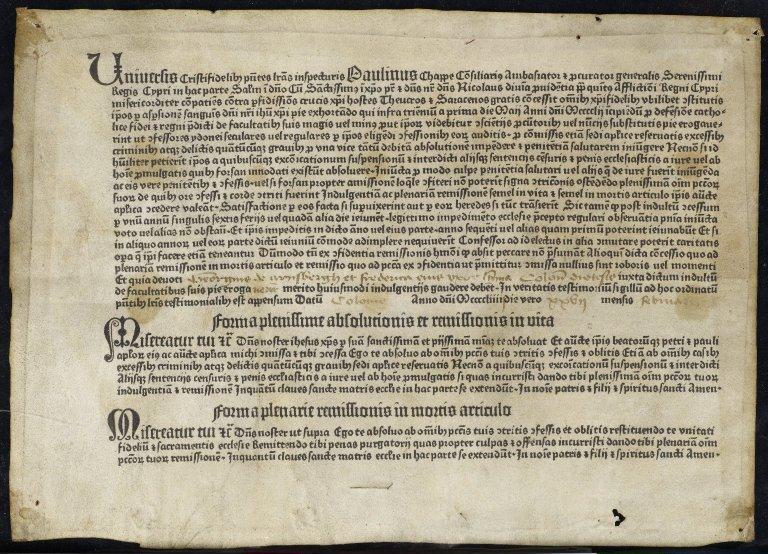 Universis Cristifidelibꝫ pn̄tes lrās inspecturis Paulinus Chappe Cōsiliariꝰ Ambasiator & ꝓcurator generalis Serenissimi
Regis Cypri in hac parte Salm̄ in dn̄o Cū Sāctissimꝰ ī xp̄o pr̄ & dn̄s nr̄ dn̄s Nicolaus diuīa ꝓuidētia ppa quītꝰ Afflictiōi Regni Cypri
misericorditer cōpatiēs cōtra ꝑfidissīos crucis xp̄i hostes Theucros & Saracenos gratis cōcessit om̄ibꝫ xp̄ifidelibꝫ vbilibet ꝯstitutis
ip̄os ꝑ aspsionē sanguīs dn̄i nr̄i ihū xp̄i pie exhortādo qui infra trienniū a prima die Maij Anni dn̄i Mccccliij incipiēdū ꝓ defēsiōe catho-
lice fidei & regni p̄dicti de facultatibꝫ suis magis vel minꝰ ꝓut ip̄oꝝ videbitur ꝯsciētijs ꝓcūtoribꝫ vel nūctijs substitutis pie erogaue-
rint vt ꝯfessores ydonei seculares vel regulares ꝑ ip̄os eligēdi ꝯfessionibꝫ eoꝝ auditis ꝓ cōmissis etiā sedi aplice reseruatis excessibꝫ
criminibꝫ atqꝫ delictis quātūcūqꝫ grauibꝫ ꝓ vna vice tātū debitā absolutionē impēdere & penitētiā salutarem iniūgere Necnō si id
hūiliter petierit ip̄os a quibuscūqꝫ excōicationum suspensionū & interdicti alijsqꝫ sentencijs cēsuris & penis ecclesiasticis a iure vel ab
hoīe ꝓmulgatis quibꝫ forsan innodati existūt absoluere Iniūcta ꝓ modo culpe penitētia salutari vel alijs que de iure fuerīt iniūgēda
ac eis vere penitētibꝫ & ꝯfessis vel si forsan propter amissionē loqle ꝯfiteri nō poterit signa ꝯtricōnis ostēdēdo plenissimā oīm pctōꝝ
suoꝝ de quibꝫ ore ꝯfessi & corde ꝯtriti fuerint Indulgentiā ac plenariā remissionē semel in vita & semel in mortis articulo ip̄is aucte
aplica ꝯcedere valeāt Satisfactione ꝑ eos facta si supuixerint aut ꝑ eoꝝ heredes si tūc trāsierit Sic tamē ꝙ post indultū ꝯcessum
ꝑ vnū annū singulis sextis ferijs vel quadā alia die ieiunēt legitimo impedimēto ecclesie p̄cepto regulari obseruātia pnīa iniūcta
voto vel alias nō obstan̄ Et ip̄is impeditis in dicto āno vel eius parte anno sequēti vel alias quam primū poterint ieiunabūt Et si
in aliquo annoꝝ vel eoꝝ parte dictū ieiuniū cōmode adimplere nequiuerīt Confessor ad id electus in alia ꝯmutare poterit caritatis
opa que ip̄i facere etiā teneantur Dūmodo tn̄ ex ꝯfidentia remissionis hm̄oi ꝙ absit peccare nō p̄sumāt Alioqui dicta cōcessio quo ad
plenariā remissionē in mortis articulo et remissio quo ad pctā ex ꝯfidentia vt p̄mittitur ꝯmissa nullius sint roboris vel momenti
Et quia deuoti iuxta dictum indultū
de facultatibus suis pie erogarunt merito huiusmodi indulgentijs gaudere debet In veritatis testimoniū sigillū ad hoc ordinatū
pn̄tibꝫ lrīs testimonialibꝫ est appensum Datū Colonie Anno dn̄i Mccccliiij die vero xxvij mensis Februarij
Forma plenissime absolutionis et remissionis in vita
Misereatur tui &c̄ Dn̄s noster ihesus xp̄s ꝑ suā sanctissimā et pijssimā miāꝫ te absoluat Et aucte ip̄ius beatoꝝqꝫ petri & pauli
aplōꝝ eiꝰ ac aucte aplica michi ꝯmissa & tibi ꝯcessa Ego te absoluo ab om̄ibꝫ pctīs tuis ꝯtritis ꝯfessis & oblitis Etiā ab om̄ibꝫ casibꝫ
excessibꝫ criminibꝫ atqꝫ delictis quātūcūqꝫ grauibꝫ sedi aplice reseruatis Necnō a quibuscūqꝫ excōicationū suspensionū & interdicti
Alijsqꝫ sentencijs censuris & penis ecclīasticis a iure vel ab hoīe ꝓmulgatis si quas incurristi dando tibi plenissimā oīm pctōꝝ tuoꝝ
indulgentiā & remissionē Inquantū claues sancte matris ecclīe in hac parte se extendūt In noīe patris & filij & spiritus sancti Amen
Forma plenarie remissionis in mortis articulo
Misereatur tui &c̄ Dn̄s noster vt supra Ego te absoluo ab om̄ibꝫ pctīs tuis ꝯtritis ꝯfessis et oblitis restituendo te vnitati
fideliū & sacramentis ecclesie Remittendo tibi penas purgatorij quas propter culpas & offensas incurristi dando tibi plenariā oīm
pctōꝝ tuoꝝ remissionē Inquantū claues sancte matris ecclīe in hac parte se extendūt In noīe patris & filij & spiritus sancti Amen